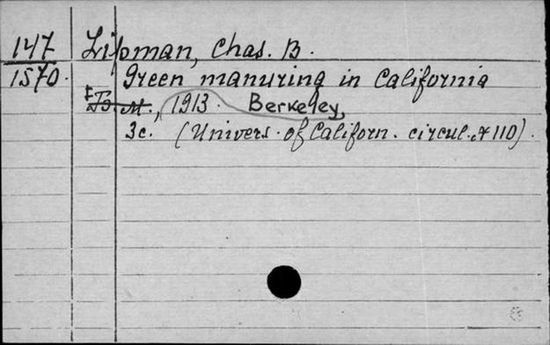 147 Lipman, Chas. B.
1570. Green manuring in California
1913. Berkeley,
3c. (Univers. of Californ. circul. № 110).